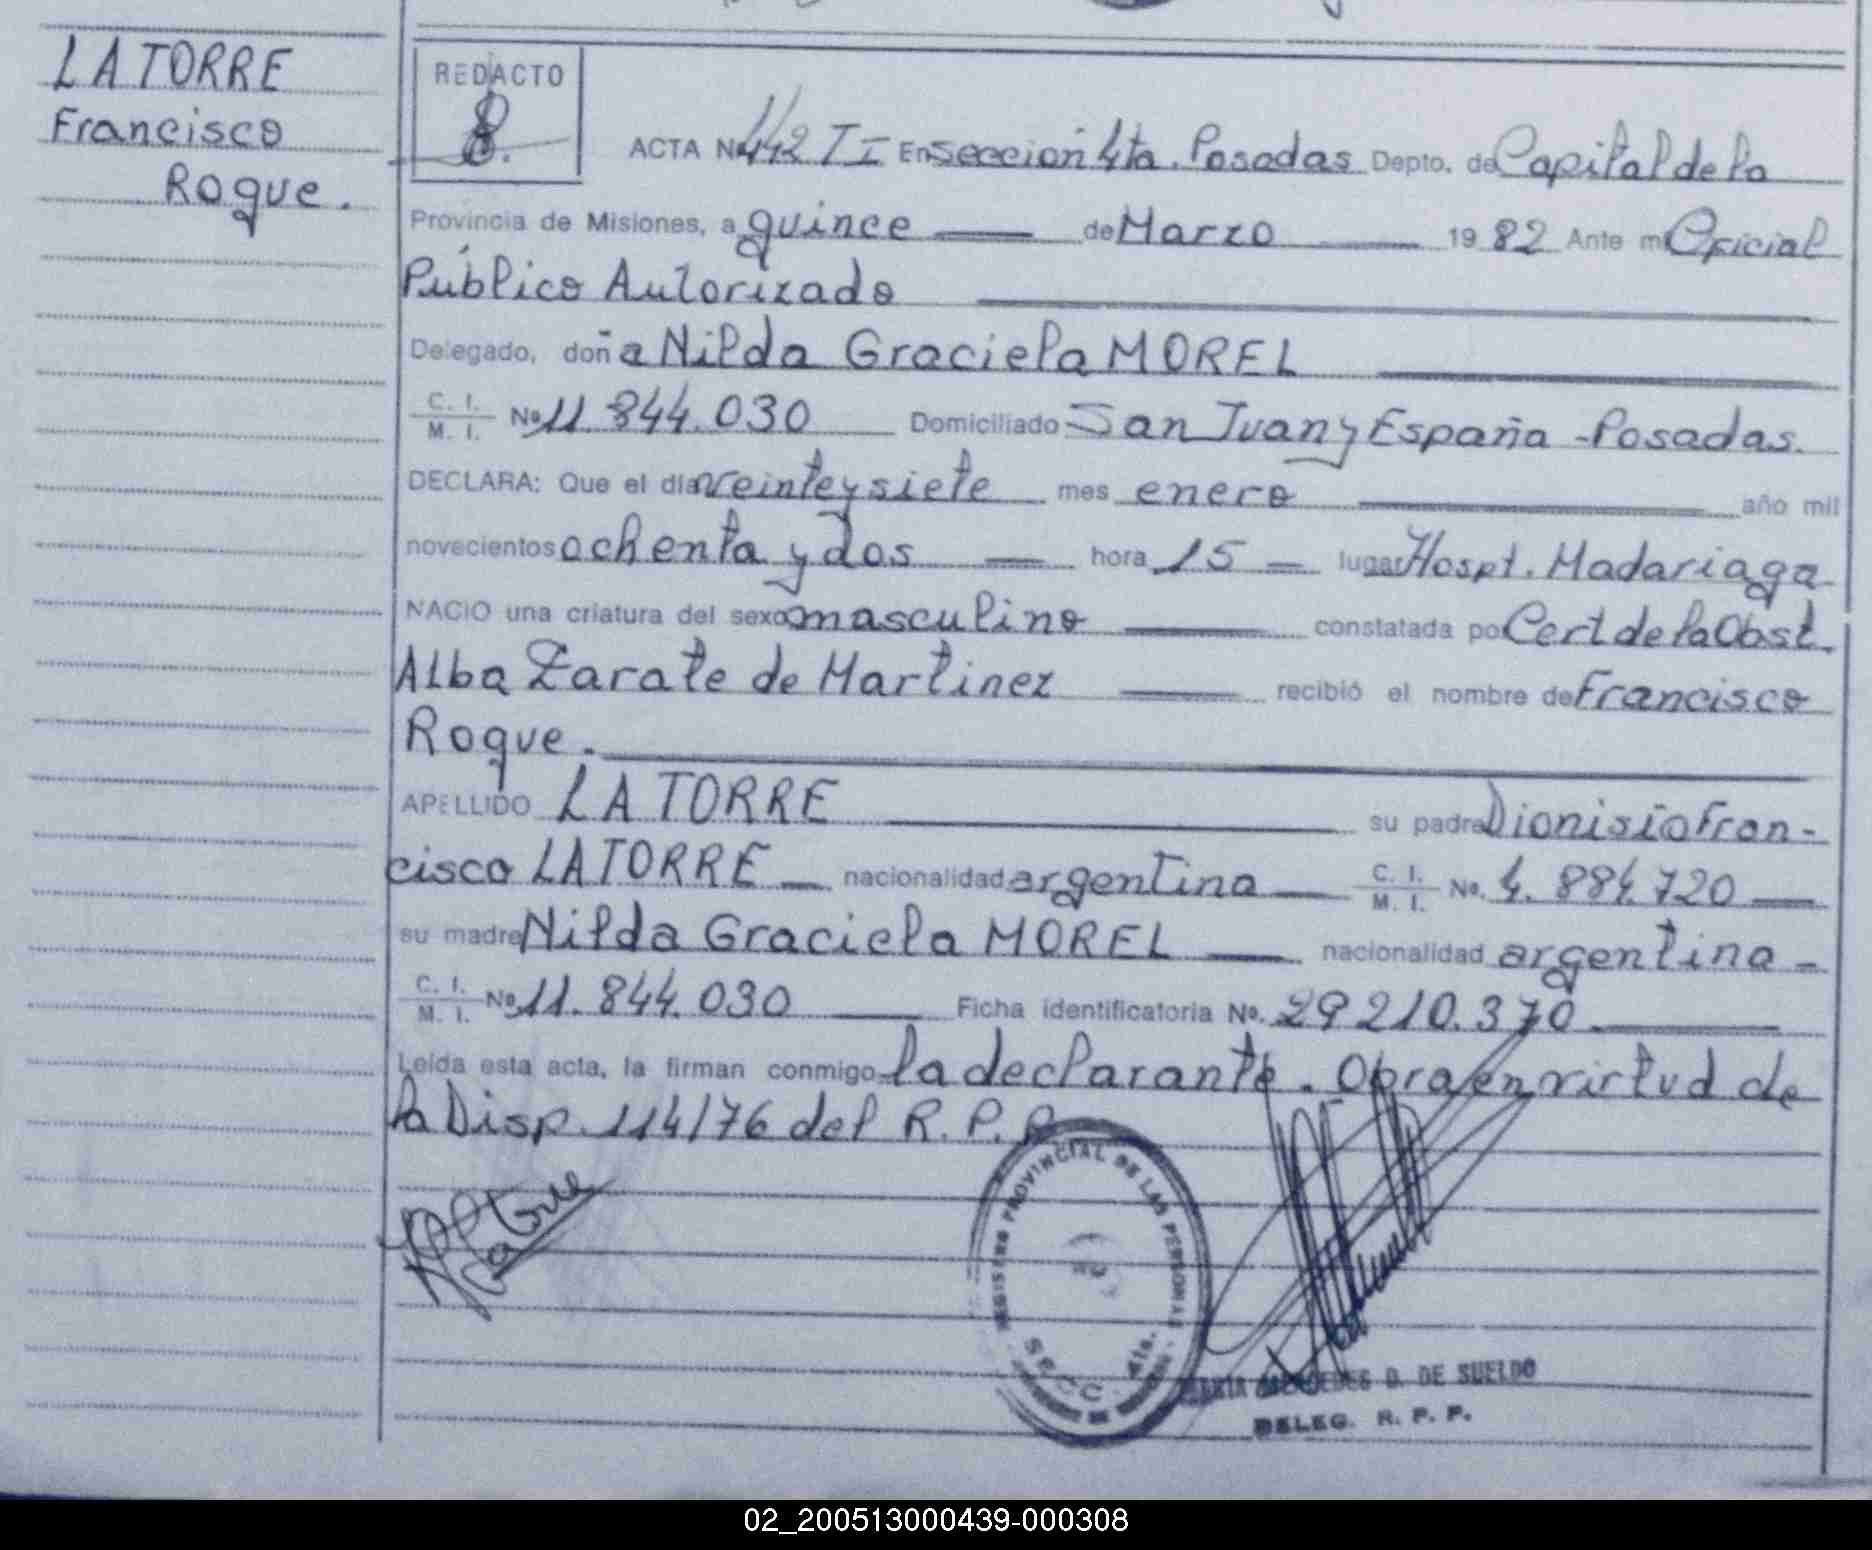 LA TORRE
Francisco
Roque.
REDACTO
8.
ACTA Nº 442 T I En sección 4ta. Posadas Depto. de Capital de la
Provincia de Misiones, a quince de Marzo 1982 Ante mi Oficial
Público Autorizado
Delegado, doña Nilda Graciela MOREL
C. I.
M. I. Nº 11.844.030 Domiciliado San Juan y España - Posadas.
DECLARA: Que el día veinte y siete mes enero año mil
novecientos ochenta y dos hora 15 lugar Hospt. Madariaga
NACIO una criatura del sexo masculino constatada por Cert de la Obst.
Alba Zarate de Martinez recibió el nombre de Francisco
Roque.
APELLIDO LA TORRE su padre Dionisio Fran-
cisco LA TORRE nacionalidad argentina C. I.
M. I. No. 4.884.720
su madre Nilda Graciela MOREL nacionalidad argentina
C. I.
M. I. Nº 11.844.030 Ficha identificatoria Nº. 29210.370
Leída esta acta, la firman conmigo la declarante. Obra en virtud de
la Disp. 114/76 del R. P. P.
Latorre
REGISTRO PROVINCIAL DE LAS PERSONAS
SECC. 4ta.
MARIA MERCEDES D. DE SUELDO
DELEG. R. P. P.
02_200513000439-000308